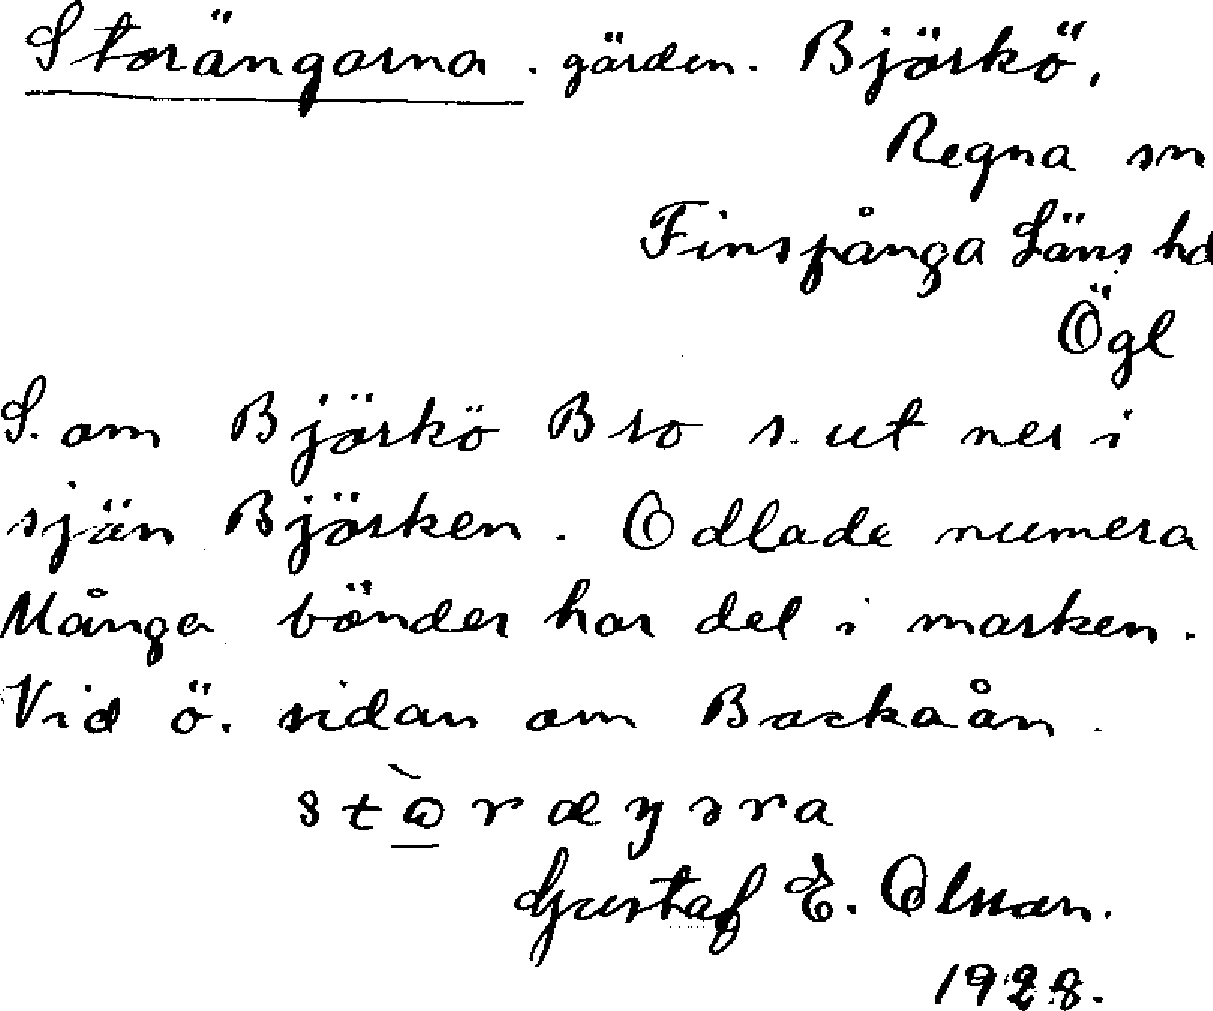 Storängarna . gärden. Björkö,
Regna sn
Finspånga Läns hd
Ögl
S. om Björkö Bro s. ut ner i
sjän Björken. Odlade numera
Många bönder har del i marken.
Vid ö. sidan om Backaån.
Gustaf E. Olsson.
1928.